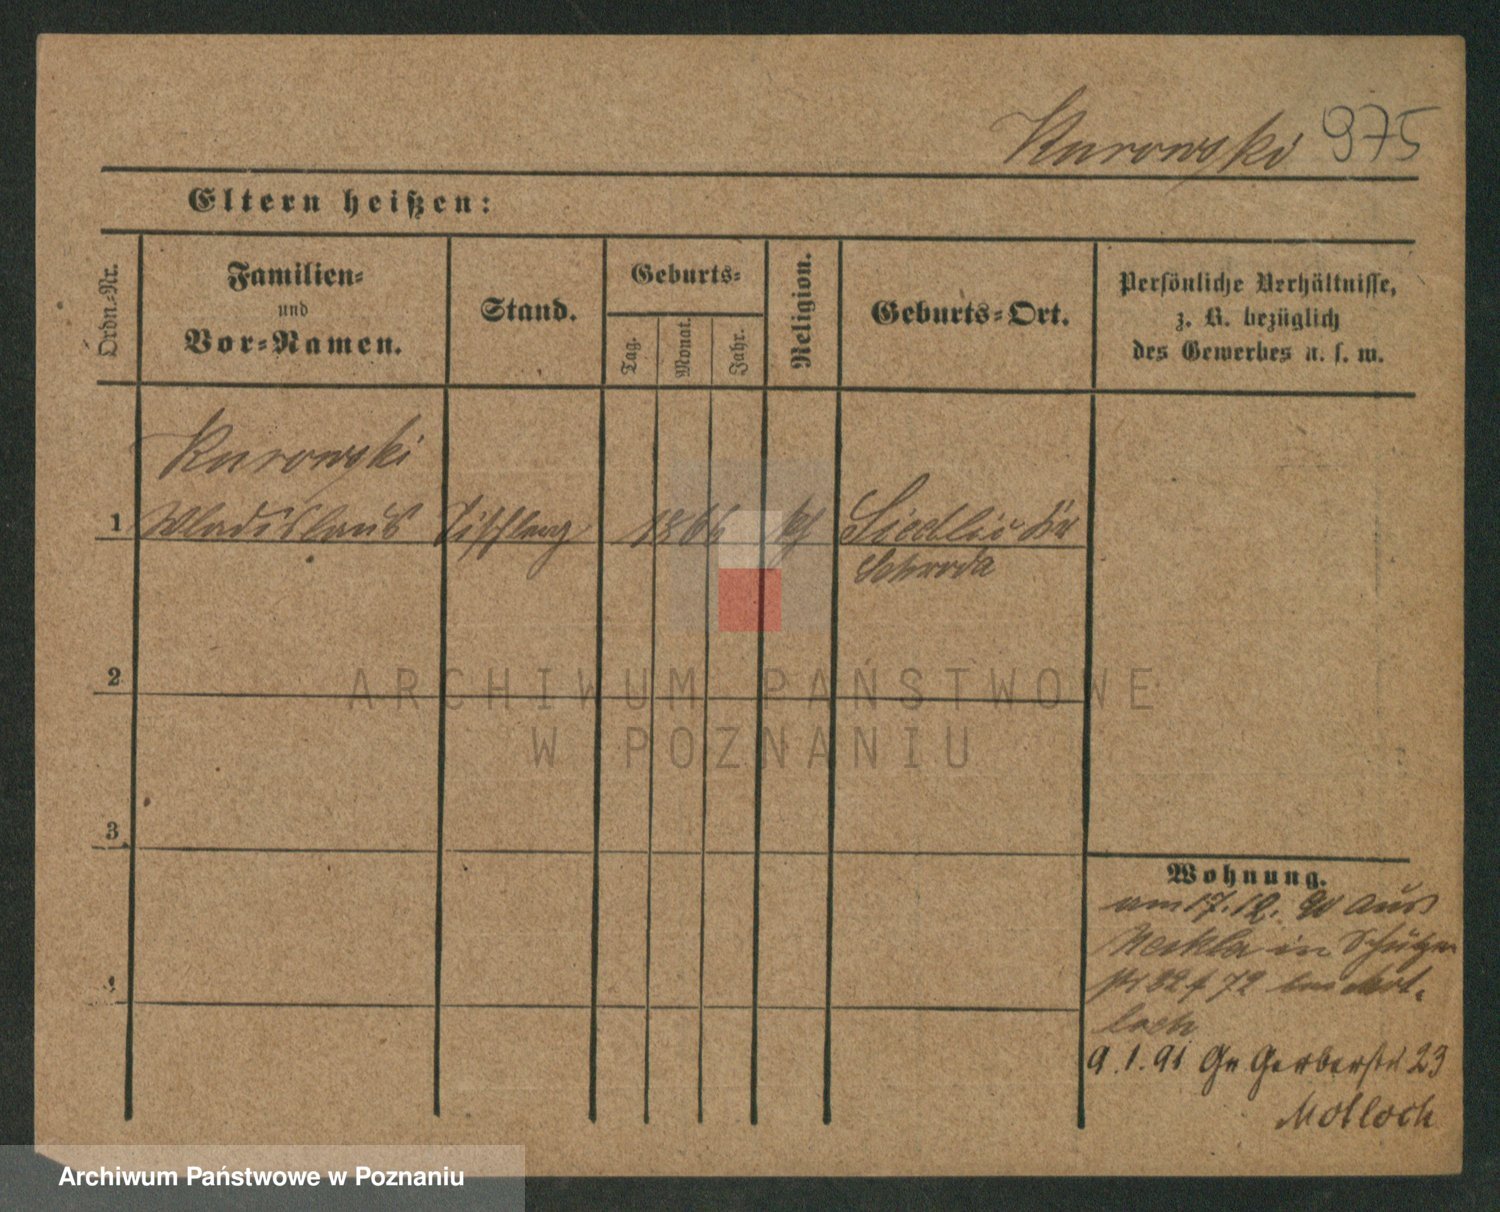 Kurowski 975
Eltern heißen:
Ordn.-Nr.
Familien-
und
Vor-Namen.
Stand.
Geburts-
Tag.
Monat.
Jahr.
Religion.
Geburts-Ort.
Persönliche Verhältnisse,
z. B. bezüglich
des Gewerbes u. s. w.
Kurowski
1 Wladislaus Tischlerg 1866 kt Siedlic Kr
Schroda
2
3
4
Wohnung.
am 17.12. 90 aus
Nekla in Schützen
str 22 f 72 bei Mol-
loch
9.1.91 Gr Gerberstr 23
Molloch
ARCHIWUM PAŃSTWOWE
W POZNANIU
Archiwum Państwowe w Poznaniu